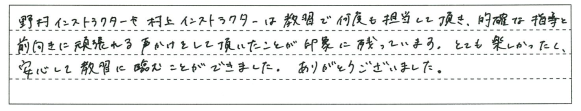 野村インストラクターや村上インストラクターは教習で何度も担当して頂き、的確な指導と
前向きに頑張れる声かけをして頂いたことが印象に残っています。とても楽しかったし、
安心して教習に臨むことができました。ありがとうございました。